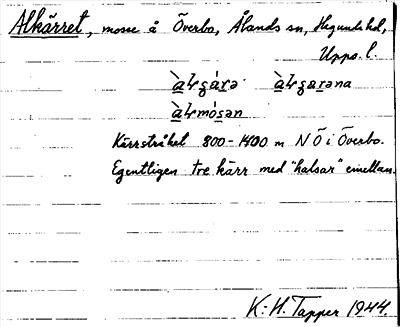 Alkärret, mosse å Överbo, Ålands sn, Hagunda hd,
Upps. l.
Kärrstråket 800-1400 m NÖ i Överbo.
Egentligen tre kärr med "halsar" emellan.
K.-H. Tapper 1944.